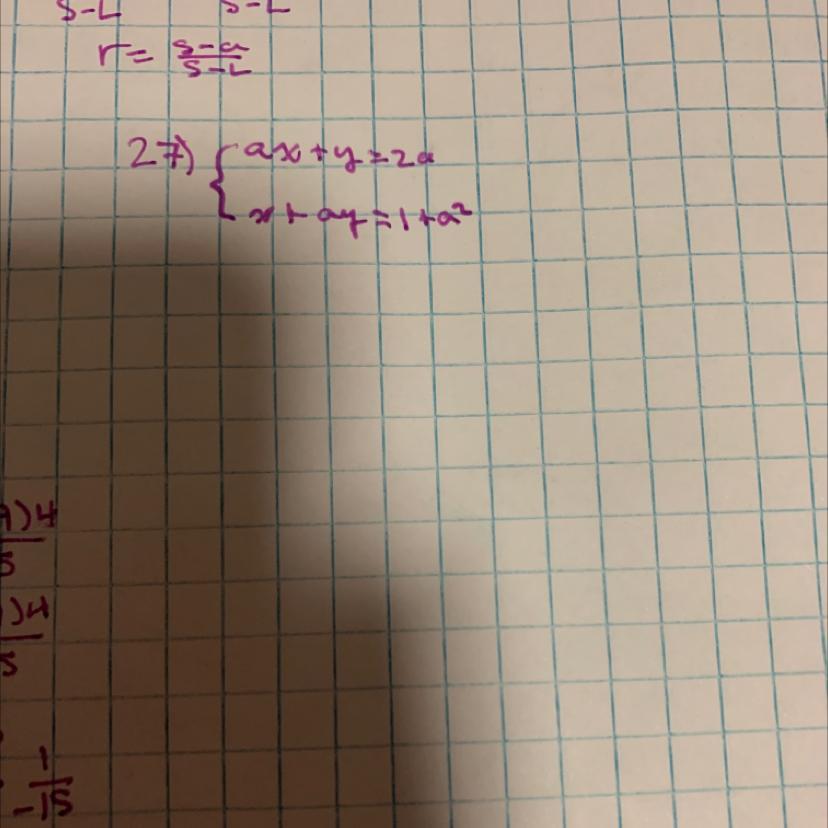 S-L S-L
r = \frac{s-a}{s-L}
27) { ax + y = 2a
x + ay = 1 + a²
)4
5
)4
5
1
-15